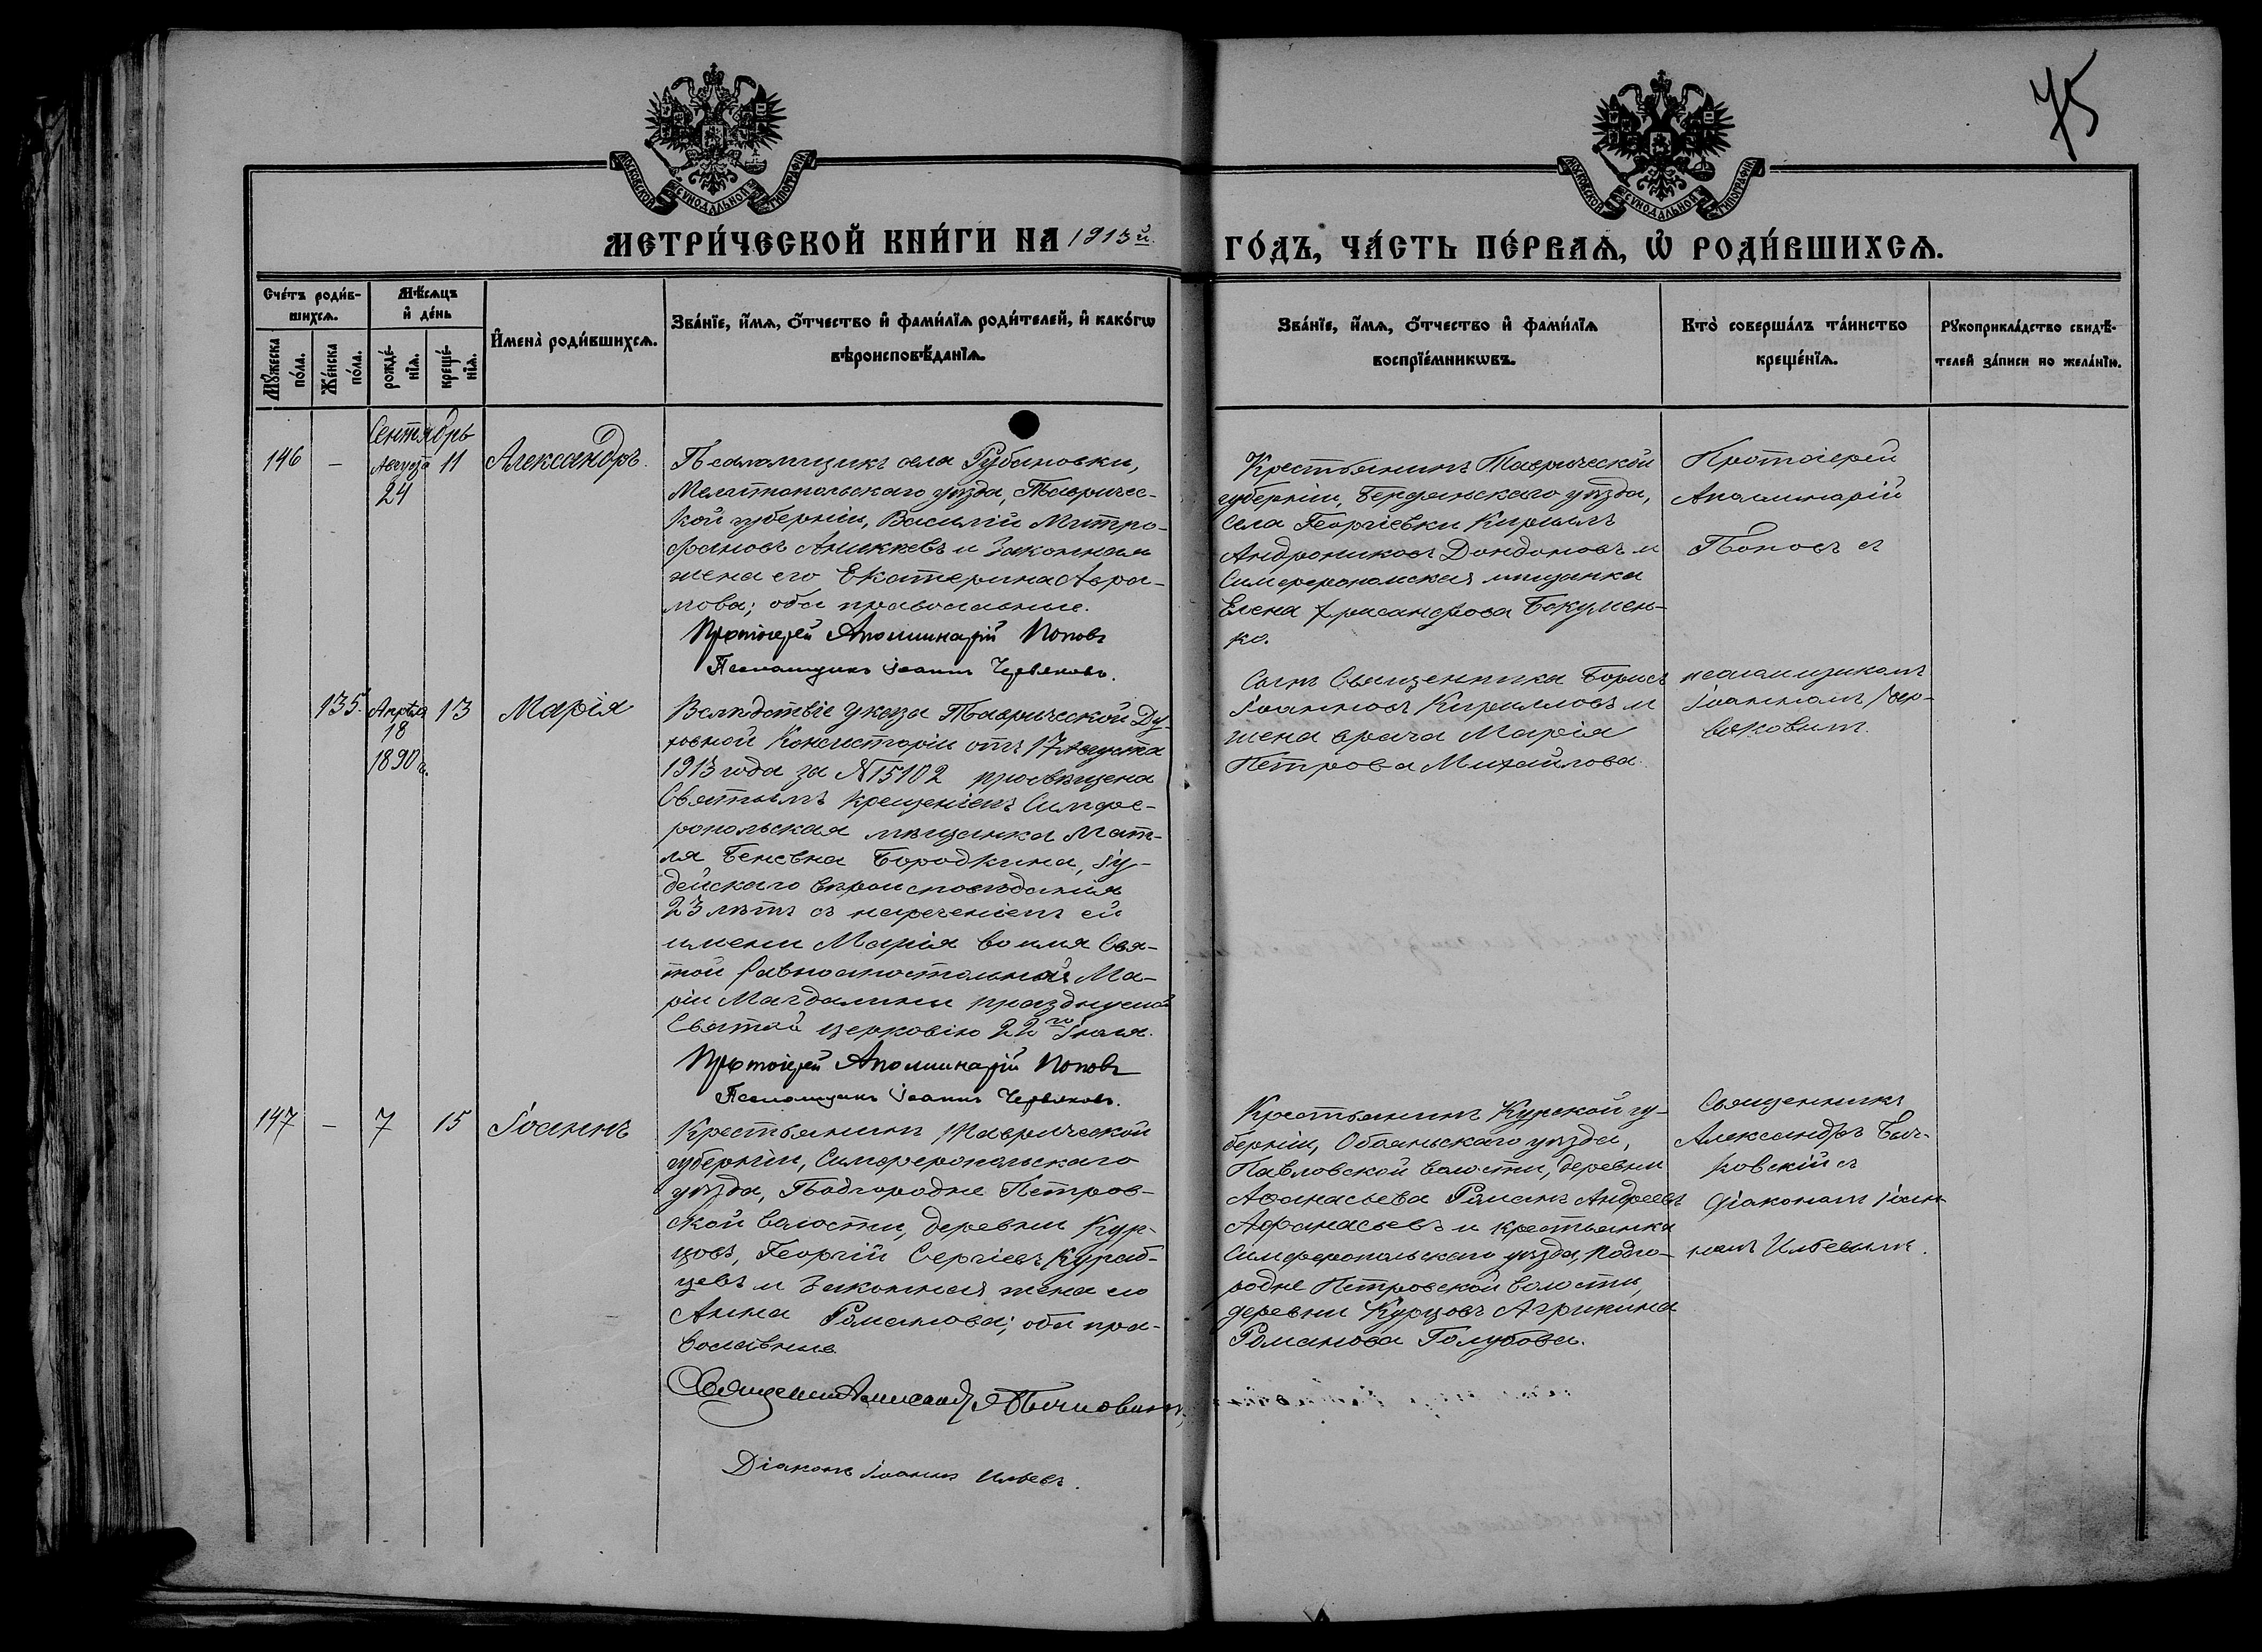 75
МОСКОВСКОЙ СѴНОДАЛЬНОЙ ТИПОГРАФІИ
МОСКОВСКОЙ СѴНОДАЛЬНОЙ ТИПОГРАФІИ
МЕТРИ́ЧЕСКОЙ КНИ́ГИ НА 1913й.
ГО́ДЪ, ЧА́СТЬ ПЕ́РВАѦ, Ѡ҆ РОДИ́ВШИХСѦ.
Сче́тъ роди́в-
шихсѧ.
Мꙋ́жеска по́ла.
Же́нска по́ла.
Мѣ́сѧцъ
и҆ де́нь
рожде́-
нїѧ.
креще́-
нїѧ.
И҆мена̀ роди́вшихсѧ.
Зва́нїе, и҆́мѧ, ѻ҆́тчество и҆ фами́лїѧ роди́телей, и҆ како́гѡ
вѣроисповѣ́данїѧ.
Зва́нїе, и҆́мѧ, ѻ҆́тчество и҆ фами́лїѧ
воспрїе́мникѡвъ.
Кто̀ соверша́лъ та́инство
креще́нїѧ.
Рꙋкоприкла́дство свидѣ́-
телей за́писи по жела́нїю.
Сентябрь
146
—
Августа
24
11
Александръ.
Псаломщикъ села Рубановки,
Мелитопольскаго уѣзда, Тавричес-
кой губерніи, Василій Митро-
фановъ Аникѣевъ и законная
жена его Екатерина Авра-
мова; оба православные.
Протоіерей Аполлинарій Поповъ
Псаломщикъ Іоаннъ Червяковъ.
Крестьянинъ Таврической
губерніи, Бердянскаго уѣзда,
села Георгіевки Кириллъ
Андрониковъ Дондоновъ и
Симферопольская мѣщанка
Елена Хрисанфова Бакумен-
ко.
Протоіерей
Аполлинарій
Поповъ съ
псаломщикомъ
Іоанномъ Чер-
вяковымъ.
135.
Апрѣля
18
1890 г.
13
Марія
Вслѣдствіе указа Таврической Ду-
ховной Консисторіи отъ 17 Августа
1913 года за № 15102 просвѣщена
Святымъ Крещеніемъ Симфе-
ропольская мѣщанка Мат-
ля Бенсвна Бородкина, Іу-
дейскаго вѣроисповѣданія
23 лѣтъ съ нареченіемъ ей
имени Марія во имя Свя-
той Равноапостольной Ма-
ріи Магдалины празднуемой
Святой церковію 22го Іюля.
Протоіерей Аполлинарій Поповъ
Псаломщикъ Іоаннъ Червяковъ.
Сынъ Священника Борисъ
Іоанновъ Кирилловъ и
жена врача Марія
Петрова Михайлова.
147
—
7
15
Іоаннъ
Крестьянинъ Таврической
губерніи, Симферопольскаго
уѣзда, Подгородне Петров-
ской волости, деревни Кур-
цовъ, Георгій Сергіевъ
и законная жена его
Анна Романова; оба пра-
вославные.
Священникъ Александръ
Діаконъ Іоаннъ Ильевъ.
Крестьянинъ Курской гу-
берніи, Обоянскаго уѣзда,
Павловской волости, деревни
Афанасьева Романъ Андреевъ
Афанасьевъ и крестьянка
Симферопольскаго уѣзда, Подго-
родне Петровской волости,
деревни Курцовъ Агрипина
Романова Голубова.
Священникъ
Александръ Быч-
ковскій съ
діакономъ Іоан-
номъ Ильевымъ.